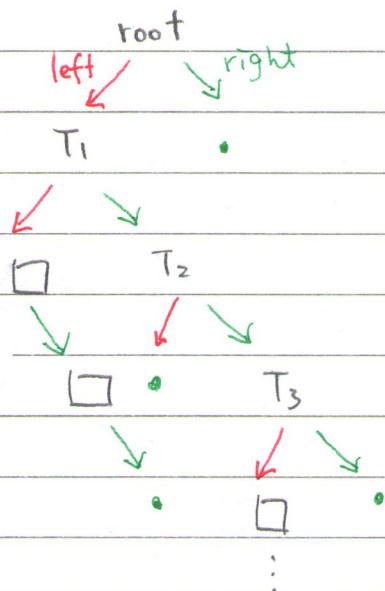 root
left right
T₁
T₂
T₃
⋮